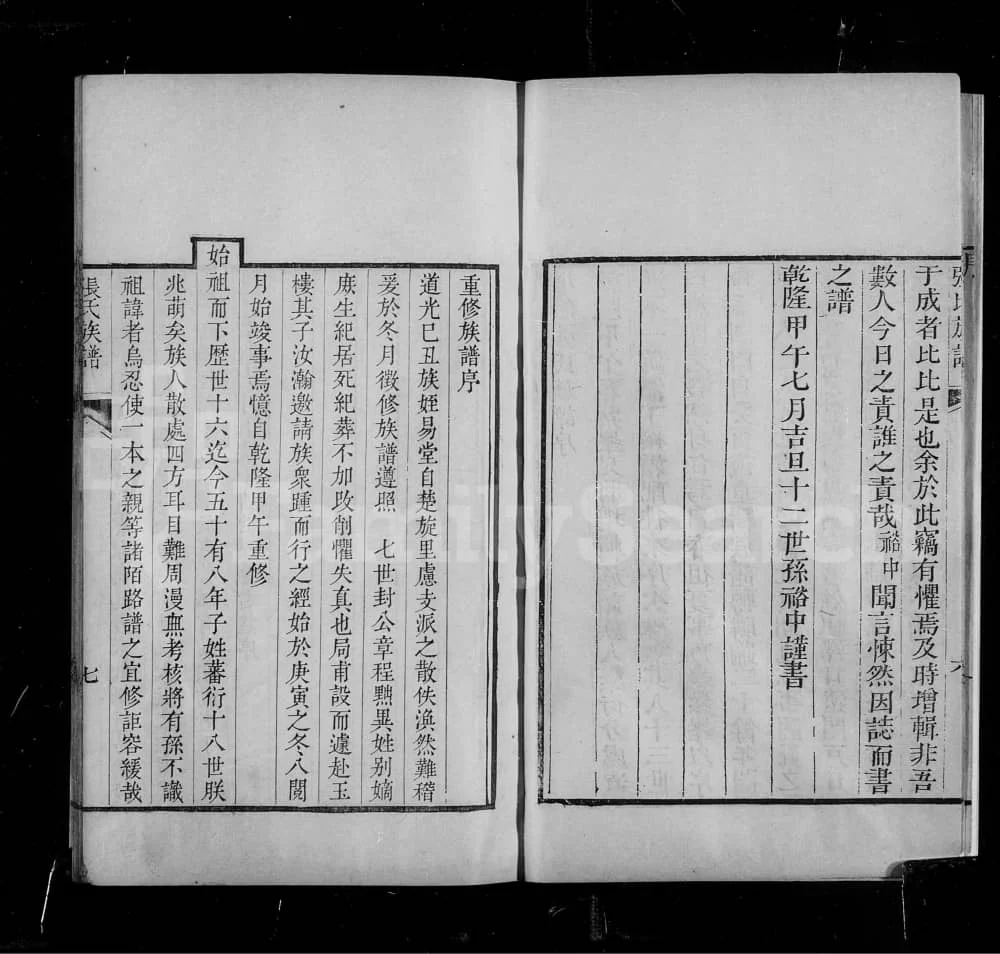 張氏族譜
六
于成者比比是也余於此竊有懼焉及時增輯非吾
數人今日之責誰之責哉裕中聞言悚然因誌而書
之譜
乾隆甲午七月吉旦十二世孫裕中謹書
重修族譜序
道光己丑族姪易堂自楚旋里慮支派之散佚渙然難稽
爰於冬月徵修族譜遵照 七世封公章程黜異姓别嫡
庶生紀居死紀葬不加攺削懼失真也局甫設而遽赴玉
樓其子汝瀚邀請族衆踵而行之經始於庚寅之冬八閱
月始竣事焉憶自乾隆甲午重修
始祖而下歷世十六迄今五十有八年子姓蕃衍十八世朕
兆萌矣族人散處四方耳目難周漫無考核將有孫不識
祖諱者烏忍使一本之親等諸陌路譜之宜修詎容緩哉
張氏族譜
七